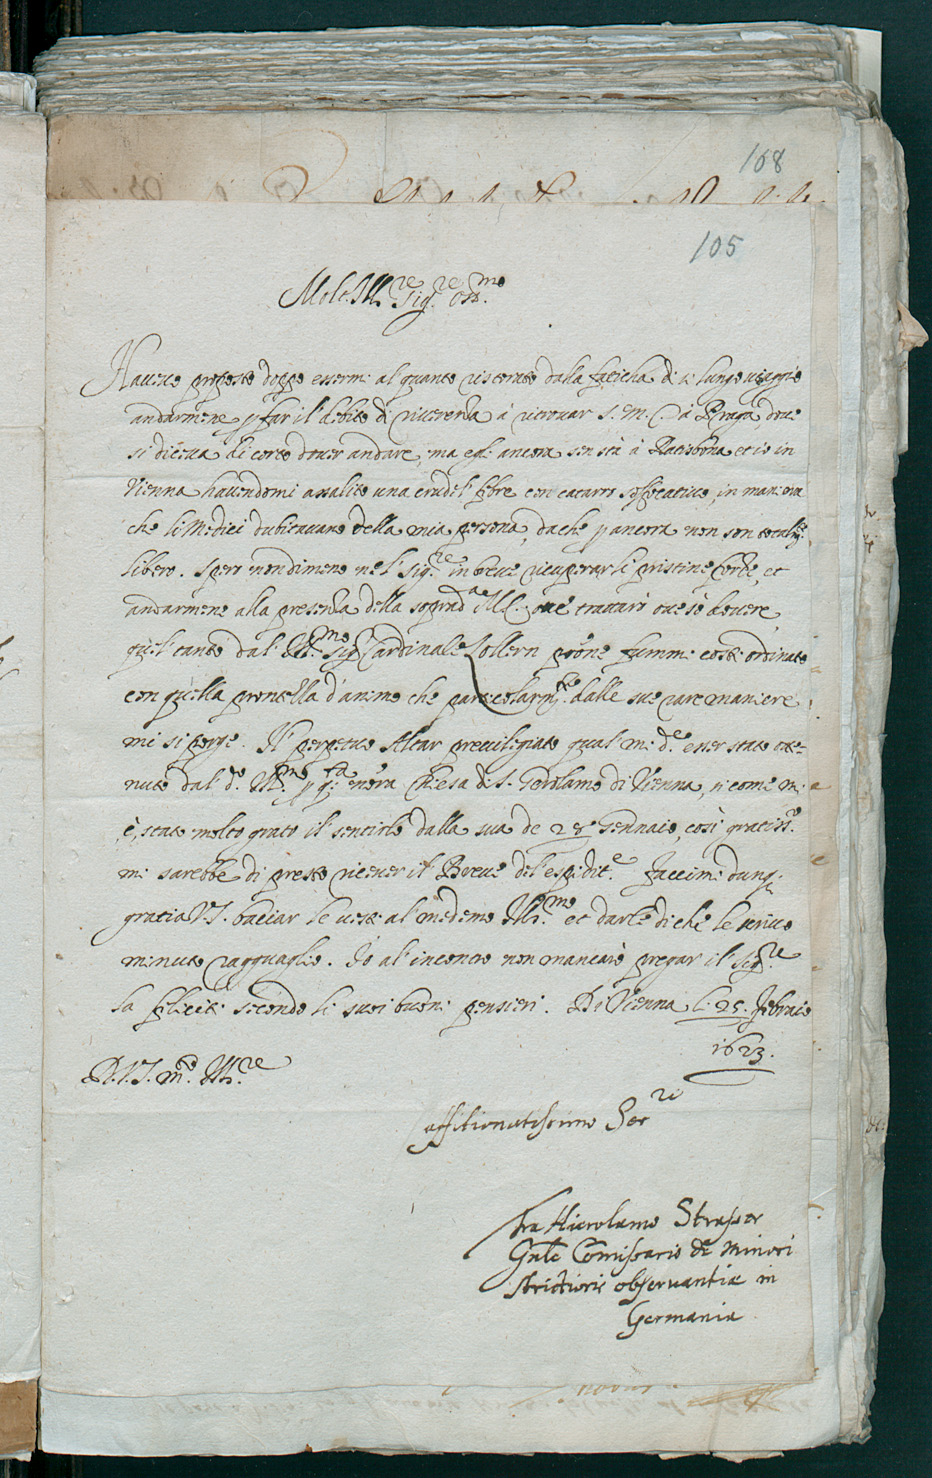 168
105
Molt Ill.re Sig.re oss.mo
Havevo proposto doppo essermi alquanto ristorato dalla faticha di sì lungo viaggio
andarmene p far il debito di riverenza à ritrovar S. M. C. à Praga, dove
si diceva di corto dover andare, ma egli ancora sen stà à Ratisbona et io in
Vienna havendomi assalito una crudel febre con catarro soffocativo, in maniera
che li Medici dubitavano della mia persona, da che p ancora non son total.te
libero. Spero nondimeno nel Sig.re in breve ricuperar li pristine forze, et
andarmene alla presenza della soprad.a M. C. ove trattarò ove sò dovere
quel tanto dal Ill.mo Sig. Cardinale Zollern prone fummi costì ordinato
con quella prontezza d'animo che particolarm.te dalle sue rare maniere
mi si porge. Il perpetuo Altar previlegiato qual mi d.e esser stato otte-
nuto dal d.o Ill.mo p q.sta nostra Chiesa di S. Gerolamo di Vienna, si come mi
è, stato molto grato il sentirlo dalla sua de 28 Gennaio, così gratiss.o
mi sarebbe di presto ricever il Breve del espedit.e Faccimi dunq.
gratia V.S. bacciar le veste al medemo Ill.mo et darle di che le scrivo
minuto ragguaglio. Io al incontro non mancarò pregar il Sig.re
la feliciti secondo li suoi buoni pensieri. Di Vienna li 25. Febraio
1623.
D. V. S. m.to Ill.re
affitionatissimo Ser.re
fra Hierolamo Strasser
Gnle Comissario de Minori
strictioris observantiæ in
Germania